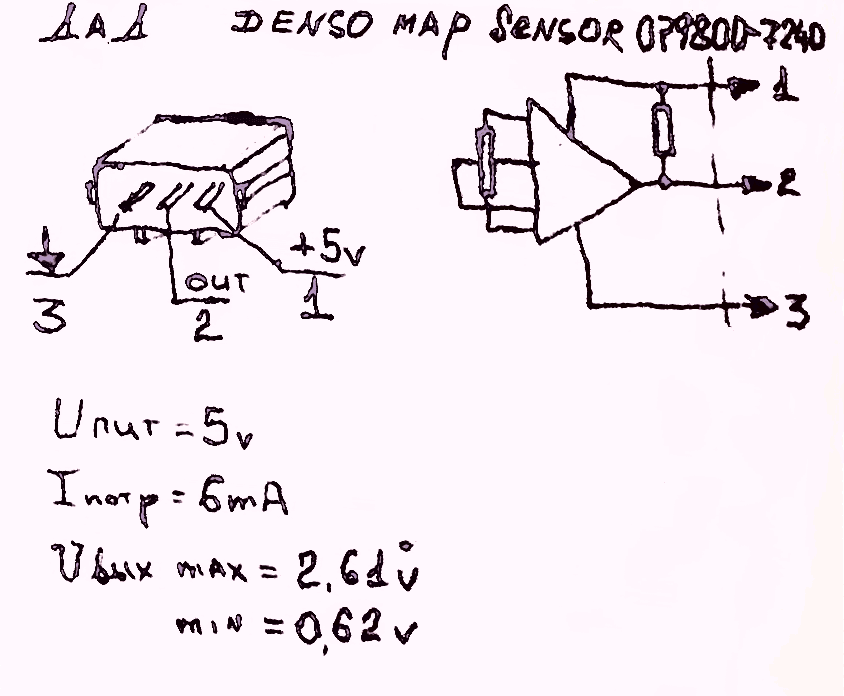 ДАД DENSO MAP SENSOR 079800-7240
1
2
3
+5v
OUT
3
2
1
Uпит = 5v
Iпотр = 6mA
Uвых max = 2,61v
min = 0,62v